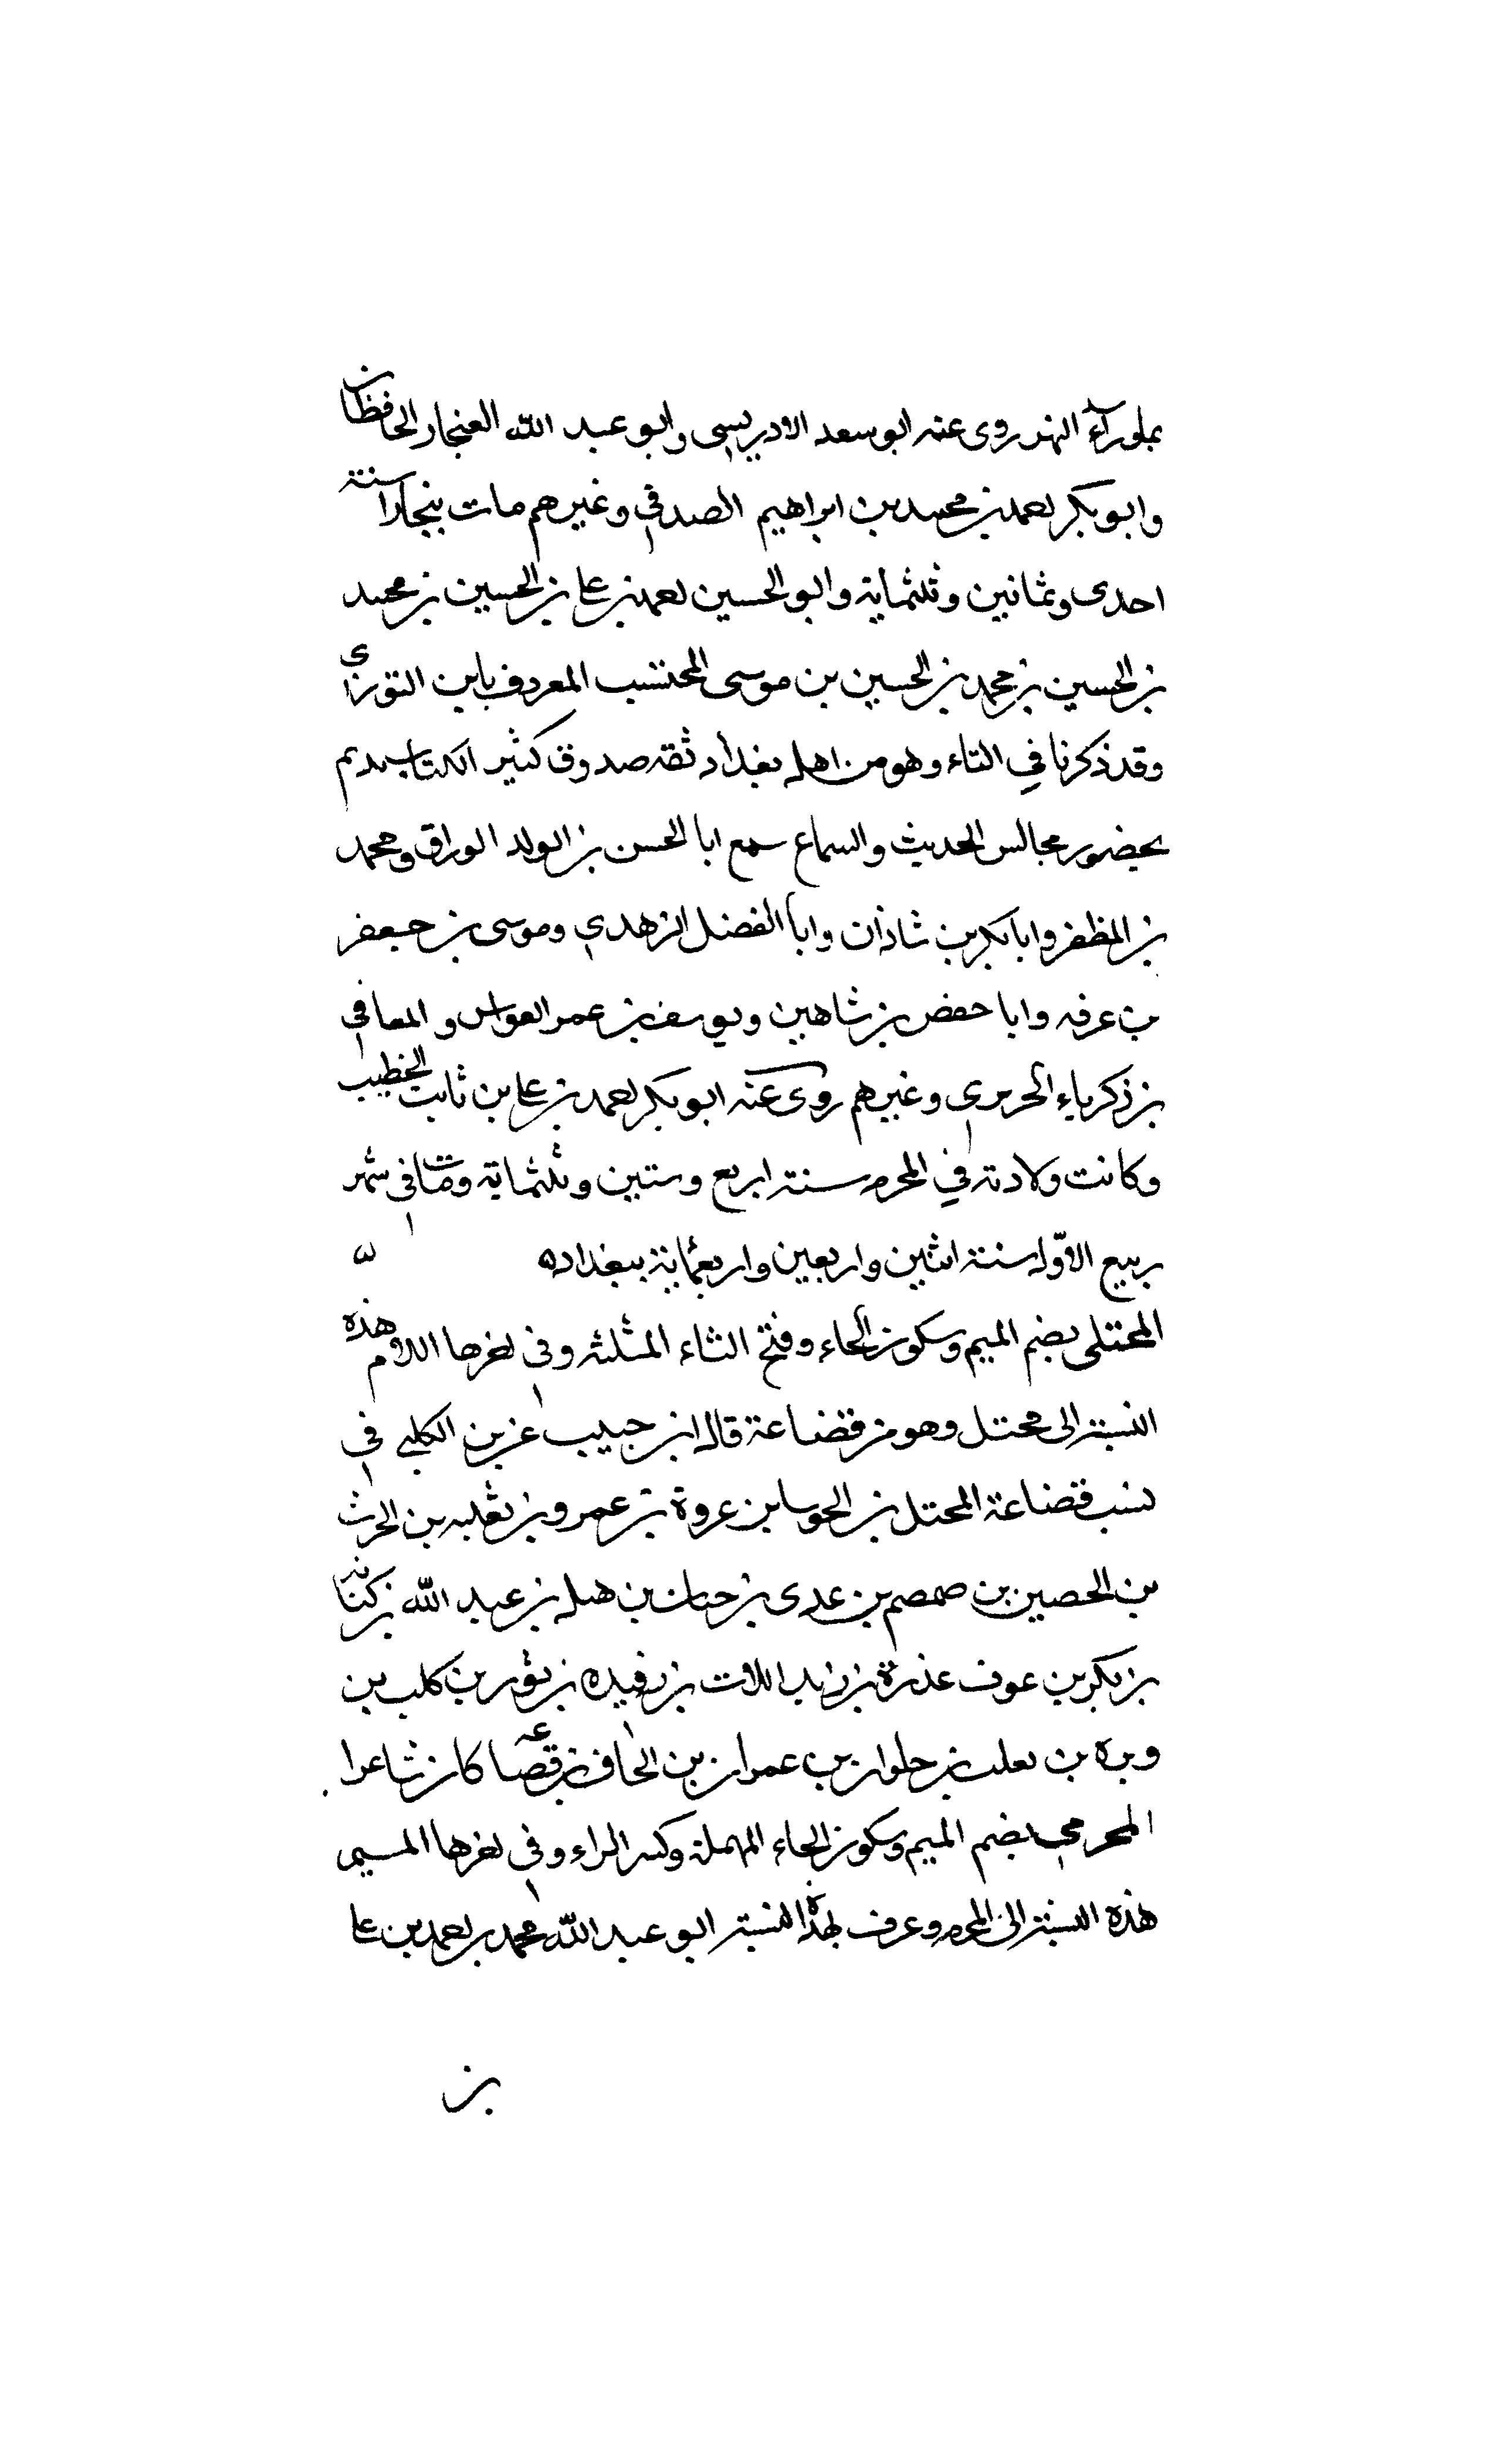 بماوراء النهر روى عنه ابو سعد الادريسى وابو عبد الله الغنجار الحافظان
وابو بكر احمد بن محمد بن ابراهيم الصدفي وغيرهم مات ببخارا سنة
احدى وثمانين وثلثماية وابو الحسين احمد بن على بن الحسين بن محمد
بن الحسين بن محمد بن الحسين بن موسى المحتسب المعروف بابن التوزى
وقد ذكرنا في التاء وهو من اهل بغداد ثقه صدوق كثير الكتاب يديم
بحضور مجالس الحديث والسماع سمع ابا الحسن بن الولد الوراق ومحمد
بن المظفر وابا بكر بن شاذان وابا الفضل الزهدي وموسى بن جعفر
بن عرفه وابا حفص بن شاهين ويوسف بن عمر القواس والمعافى
بن زكرياء الحريرى وغيرهم روى عنه ابو بكر احمد بن على بن ثابت الخطيب
وكانت ولادته في المحرم سنة اربع وستين وثلثماية ومات في شهر
ربيع الاول سنة اثنين واربعين واربعماية ببغداده
المحتلى بضم الميم وسكون الحاء وفتح الثاء المثلثه وفى اخرها اللام هذه
النسبة الى محتل وهو من قضاعة قال ابن حبيب عن بن الكلبي في
نسب قضاعة المحتل بن الحوسا بن عروة بن عمرو بن ثعلبه بن الحرث
بن الحصين بن صمصم بن عدى بن جناب بن هبل بن عبد الله بن كنانه
بن بكر بن عوف عذرة بن زيد اللات بن رفيده بن ثور بن كلب بن
وبره بن تعلب بن حلوان بن عمران بن الحاف بن قضاعه كان شاعرا
المحرمى بضم الميم وسكون الحاء المهملة وكسر الراء وفى اخرها الميم
هذه النسبة الى المحرم وعرف بهذا النسبة ابو عبد الله محمد بن احمد بن على
بن